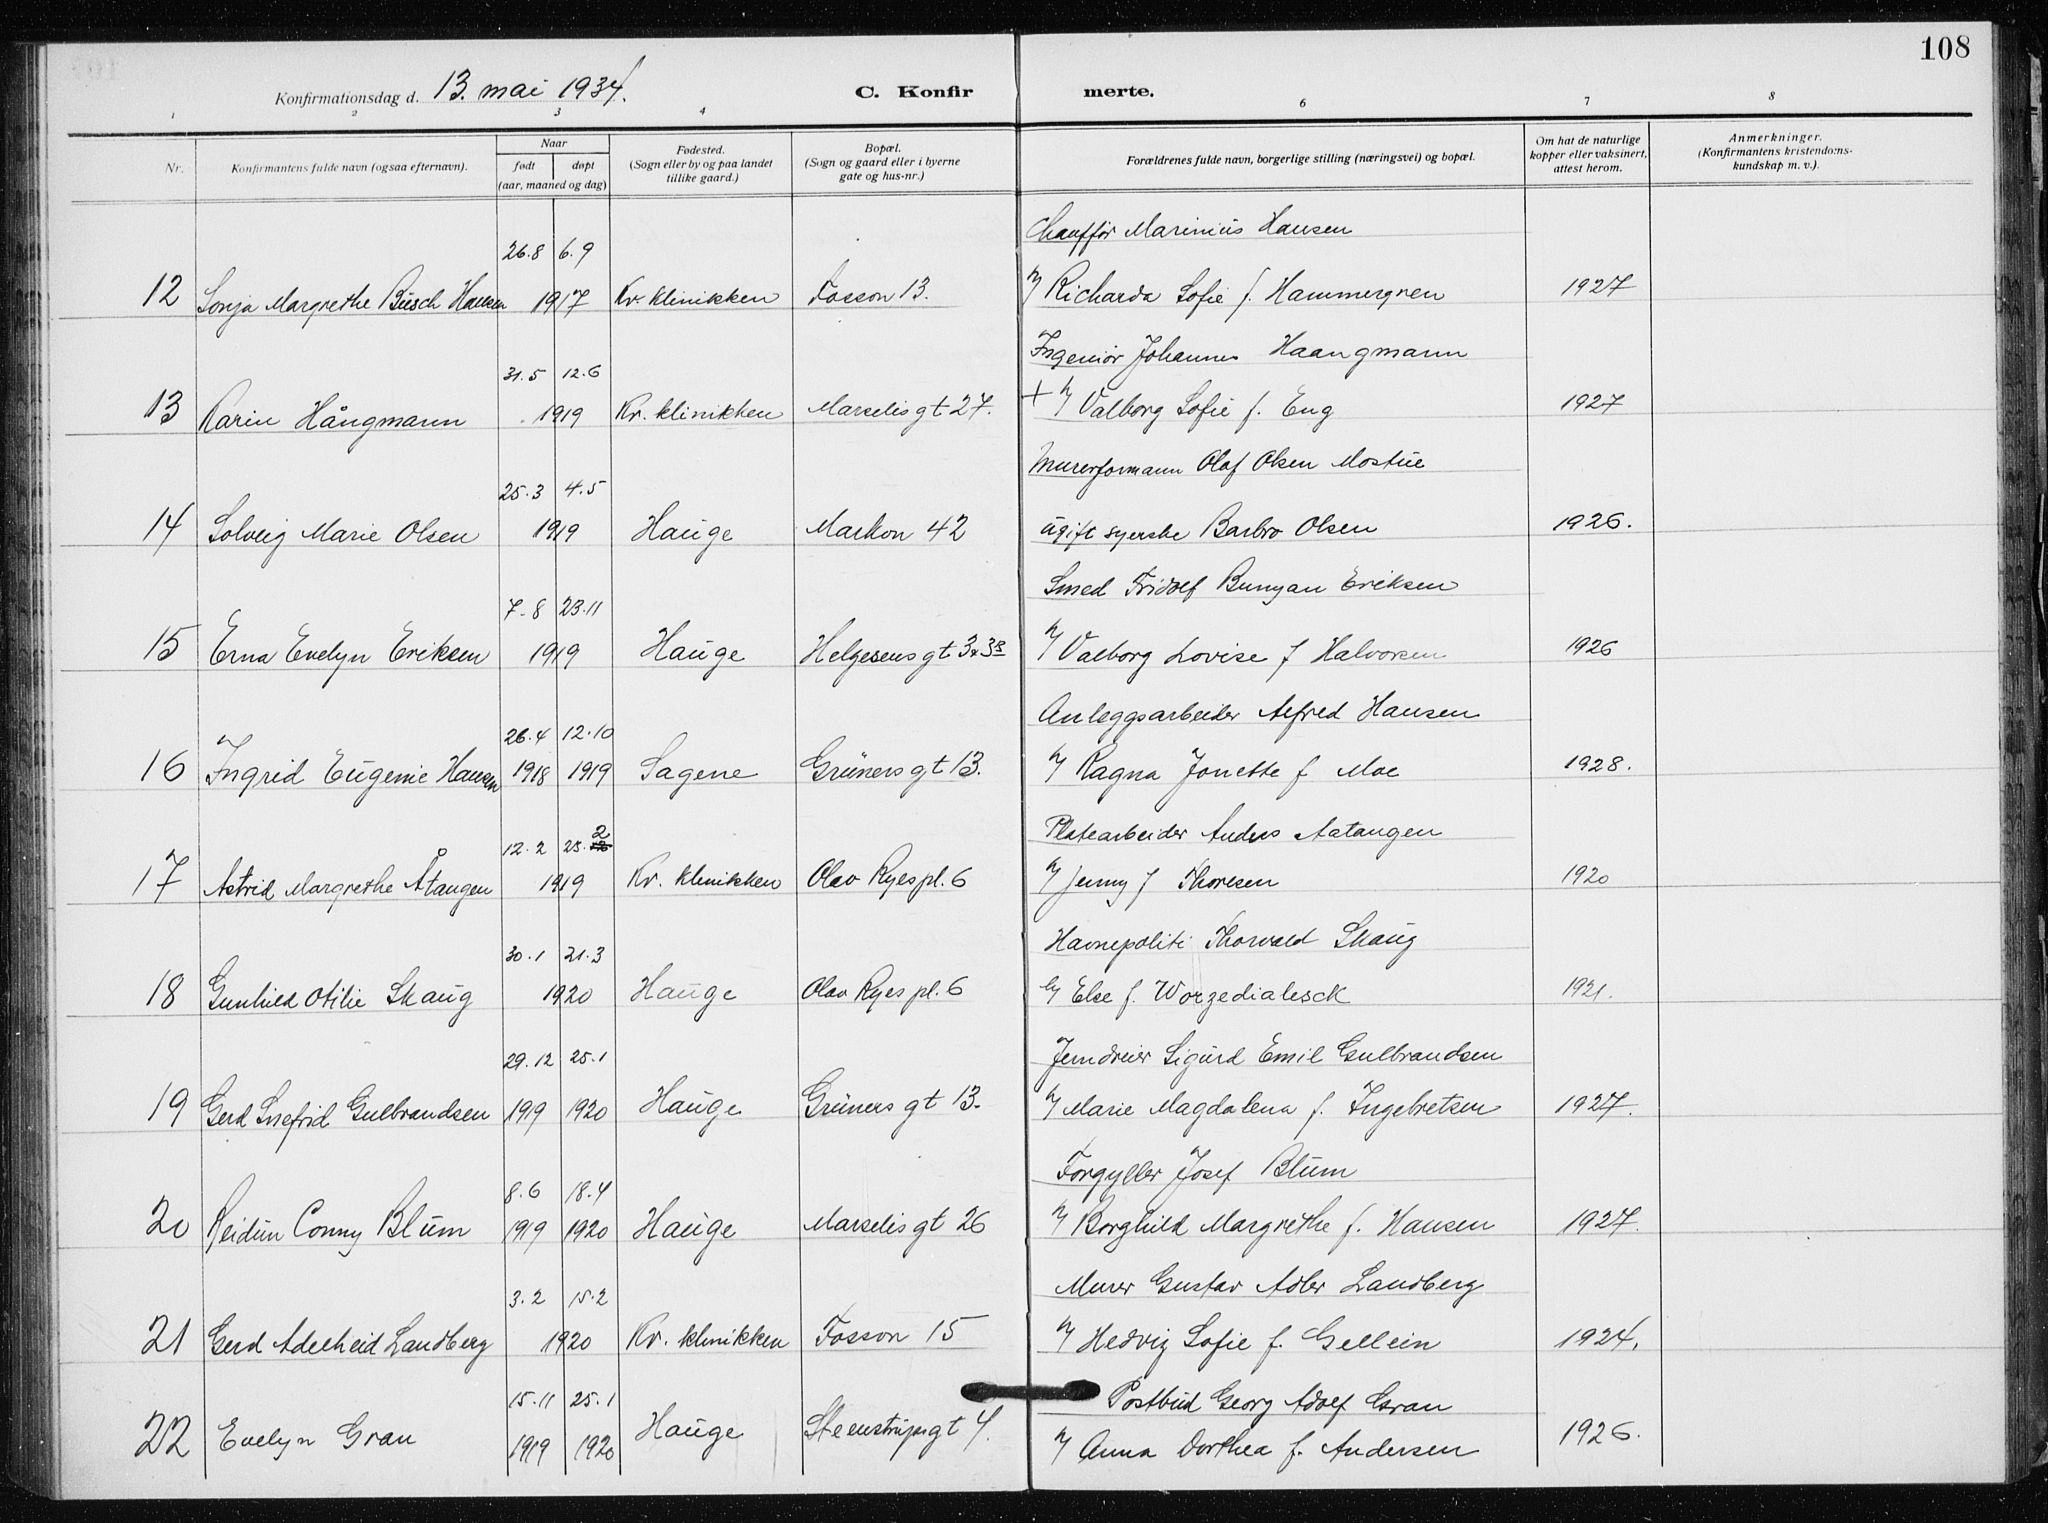 108
Konfirmationsdag d. 13. mai 1934.
C. Konfirmerte.
1 2 3 4 5 6 7 8
Nr. Konfirmantens fulde navn (ogsaa efternavn). Naar født døpt (aar, maaned og dag) Fødested. (Sogn eller by og paa landet tillike gaard.) Bopæl. (Sogn og gaard eller i byerne gate og hus-nr.) Forældrenes fulde navn, borgerlige stilling (næringsvei) og bopæl. Om hat de naturlige kopper eller vaksinert, attest herom. Anmerkninger. (Konfirmantens kristendomskundskap m. v.).
26.8 6.9 Chauffør Marinius Hansen
12 Sonja Margrethe Busch Hansen 1917 Kv. klinikken Fosson 13. Richarda Sofie f. Hammergren 1927
31.5 12.6 Ingeniør Johannes Haangmann
13 Karin Hångmann 1919 Kv. klinikken Marselisgt 27. + Valborg Sofie f. Eng 1927
25.3 4.5 Murerformann Olaf Olsen Mostue
14 Solveig Marie Olsen 1919 Hauge Markon 42 ugift syerske Barbro Olsen 1926.
7.8 23.11 Smed Fridolf Bunyan Eriksen
15 Erna Evelyn Eriksen 1919 Hauge Helgesensgt Valborg Lovise f Halvorsen 1926
26.4 12.10 Anleggsarbeider Alfred Hansen
16 Ingrid Eugenie Hansen 1918 1919 Sagene Grünersgt 13. Ragna Jonette f Moe 1928.
12.2 25.2 Platearbeider Anders Aatangen
17 Astrid Margrethe Åtangen 1919 Kv. klinikken Olav Ryespl. 6 Jenny f Thoresen 1920
30.1 21.3 Havnepoliti Thorvald Skaug
18 Gunhild Otilie Skaug 1920 Hauge Olav Ryes pl. 6 Else f. Worzedialesck 1921.
29.12 25.1 Jerndreier Sigurd Emil Gulbrandsen
19 Gerd Snefrid Gulbrandsen 1919 1920 Hauge Grüners gt 13. Marie Magdalena f. Ingebretsen 1927.
8.6 18.4 Forgyller Josef Blum
20 Reidun Conny Blum 1919 1920 Hauge Marselisgt 26 Borghild Margrethe f. Hansen 1927.
3.2 15.2 Murer Gustav Adler Landberg
21 Gerd Adelheid Landberg 1920 Kv. klinikken Fosson 15 Hedvig Sofie f. Gellein 1924.
15.11 25.1 Postbud Georg Adolf Gran
22 Evelyn Gran 1919 1920 Hauge Steenstrupsgt 4. Anna Dorthea f. Andersen 1926.